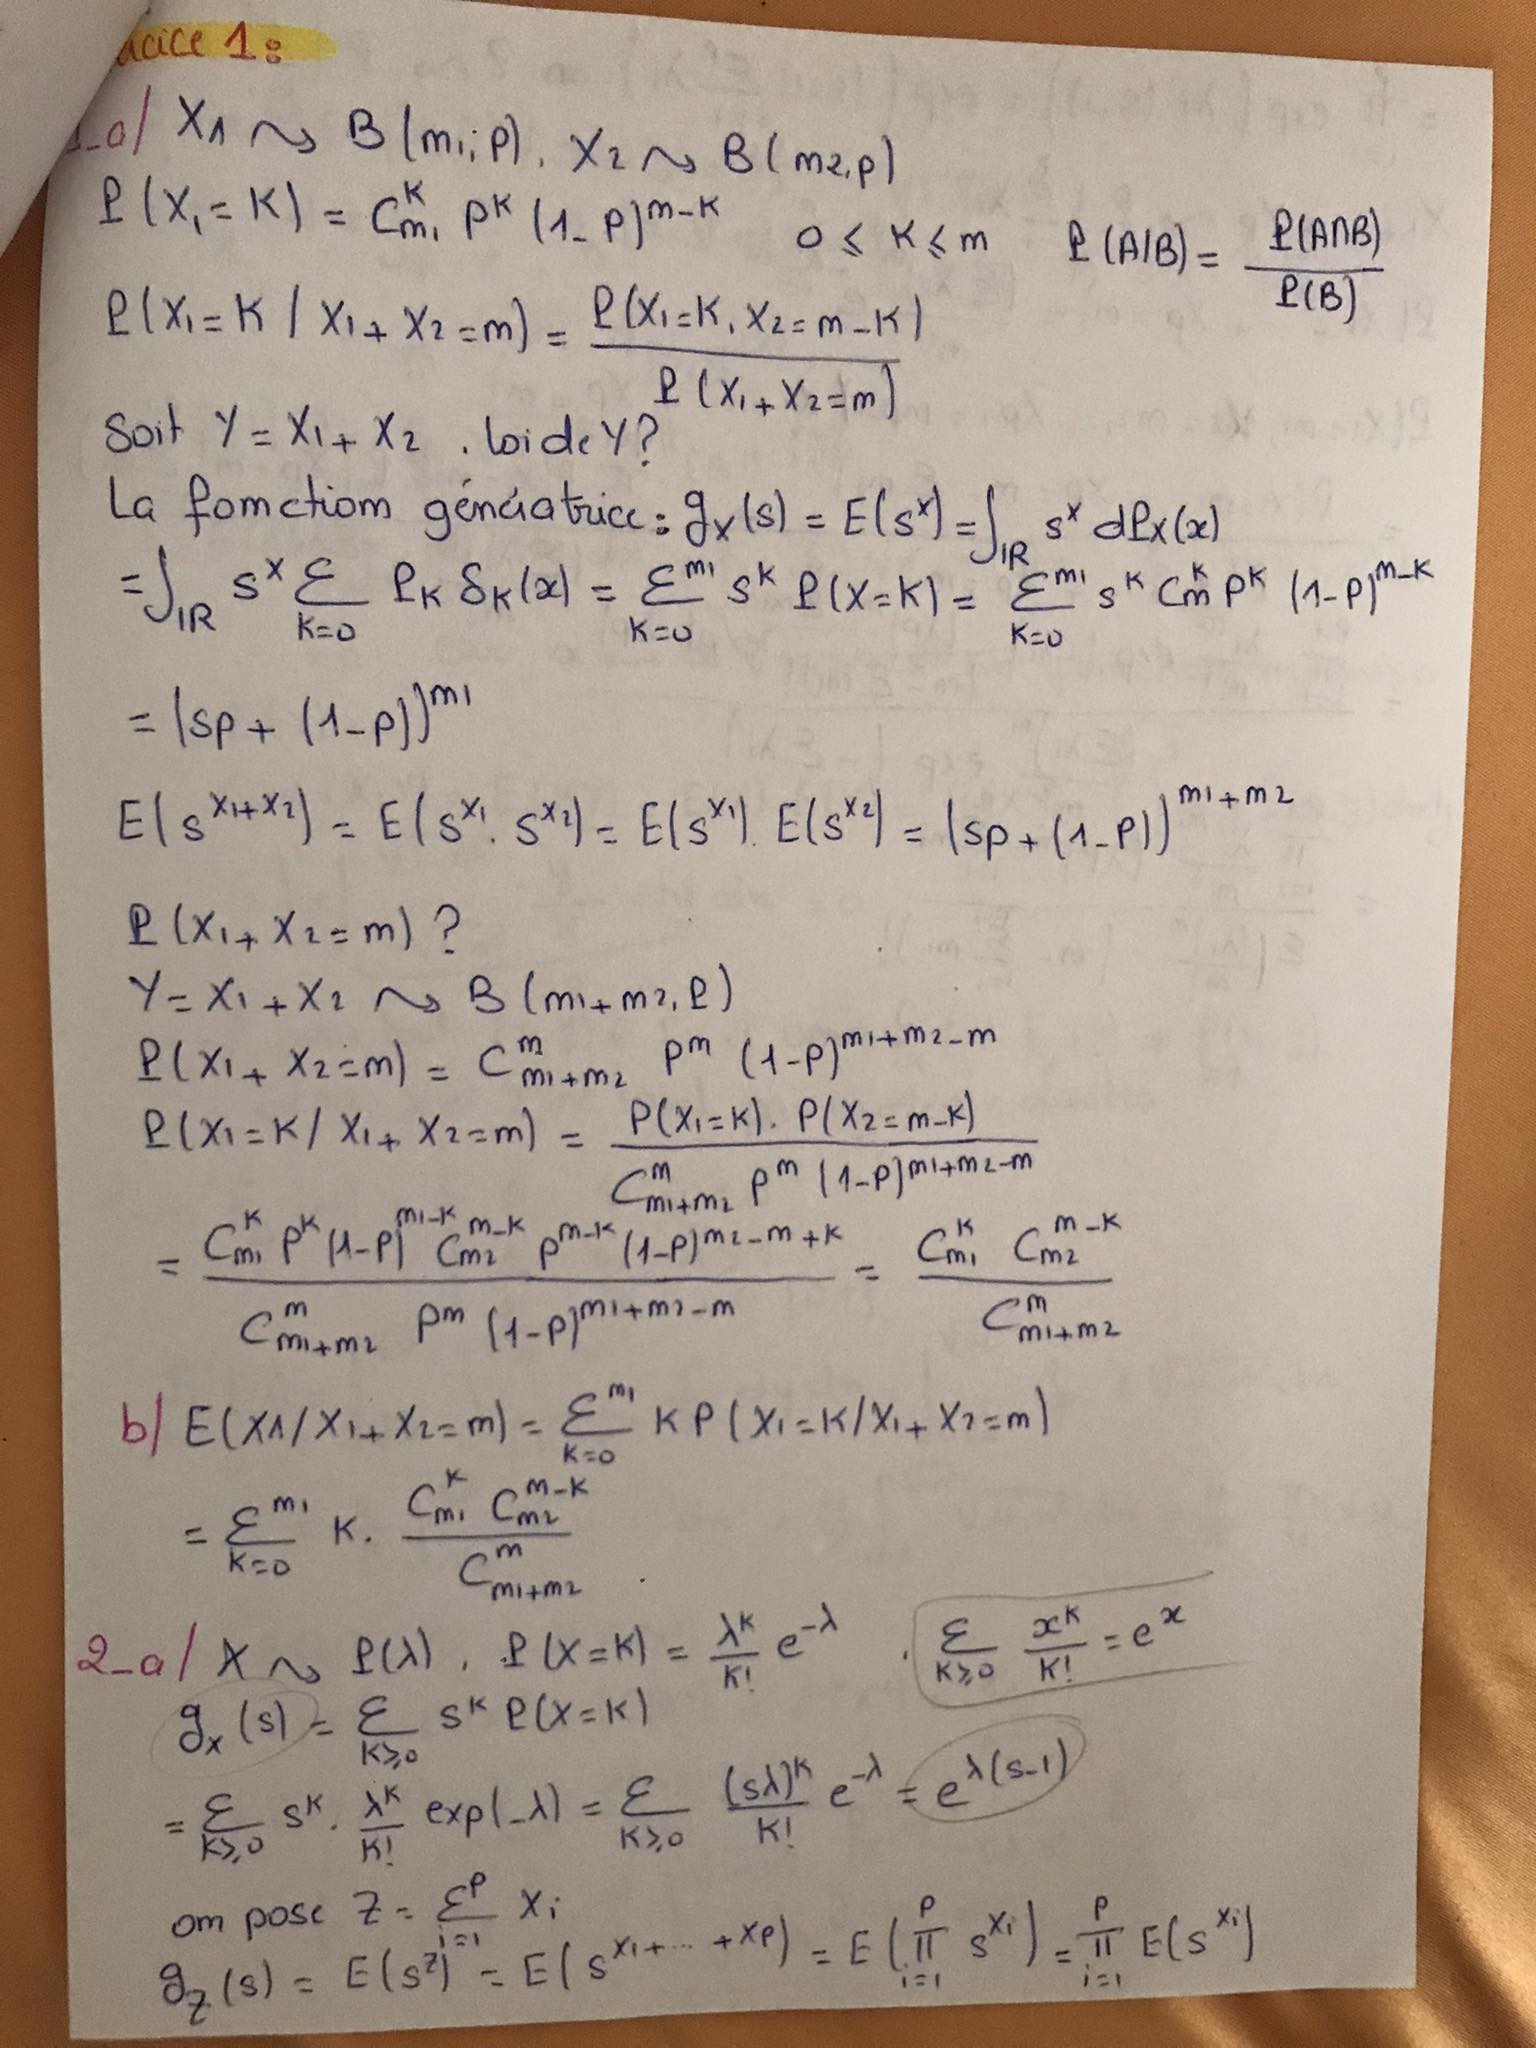 acice 1:
1_a/ X1 ⤳ B(m1;p). X2 ⤳ B(m2,p)
P(X1=K) = C_{m1}^K P^K (1-P)^{m-K} 0 ≤ K ≤ m P(A/B) = P(A∩B) / P(B)
P(X1=K / X1+X2=m) = P(X1=K, X2=m-K) / P(X1+X2=m)
Soit Y = X1+X2. loi de Y?
La fonction génératrice: g_X(s) = E(s^X) = ∫_{IR} s^x dP_X(x)
= ∫_{IR} s^x Σ_{K=0} P_K δ_K(x) = Σ_{K=0}^{m1} s^K P(X=K) = Σ_{K=0}^{m1} s^K C_m^K P^K (1-P)^{m-K}
= (sp + (1-p))^{m1}
E(s^{X1+X2}) = E(s^{X1}. s^{X2}) = E(s^{X1}). E(s^{X2}) = (sp + (1-P))^{m1+m2}
P(X1+X2=m)?
Y = X1+X2 ⤳ B(m1+m2, P)
P(X1+X2=m) = C_{m1+m2}^m P^m (1-P)^{m1+m2-m}
P(X1=K / X1+X2=m) = P(X1=K). P(X2=m-K) / C_{m1+m2}^m P^m (1-P)^{m1+m2-m}
= C_{m1}^K P^K (1-P)^{m1-K} C_{m2}^{m-K} P^{m-K} (1-P)^{m2-m+K} / C_{m1+m2}^m P^m (1-P)^{m1+m2-m} = C_{m1}^K C_{m2}^{m-K} / C_{m1+m2}^m
b/ E(X1/X1+X2=m) = Σ_{K=0}^{m1} K P(X1=K/X1+X2=m)
= Σ_{K=0}^{m1} K. C_{m1}^K C_{m2}^{m-K} / C_{m1+m2}^m .
2_a/ X ⤳ P(λ), P(X=K) = λ^K / K! e^{-λ} . Σ_{K≥0} x^K / K! = e^x
g_X(s) = Σ_{K≥0} s^K P(X=K)
= Σ_{K≥0} s^K. λ^K / K! exp(-λ) = Σ_{K≥0} (sλ)^K / K! e^{-λ} = e^{λ(s-1)}
on pose Z = Σ_{i=1}^P Xi
g_Z(s) = E(s^Z) = E(s^{X1+...+XP}) = E(Π_{i=1}^P s^{Xi}) = Π_{i=1}^P E(s^{Xi})